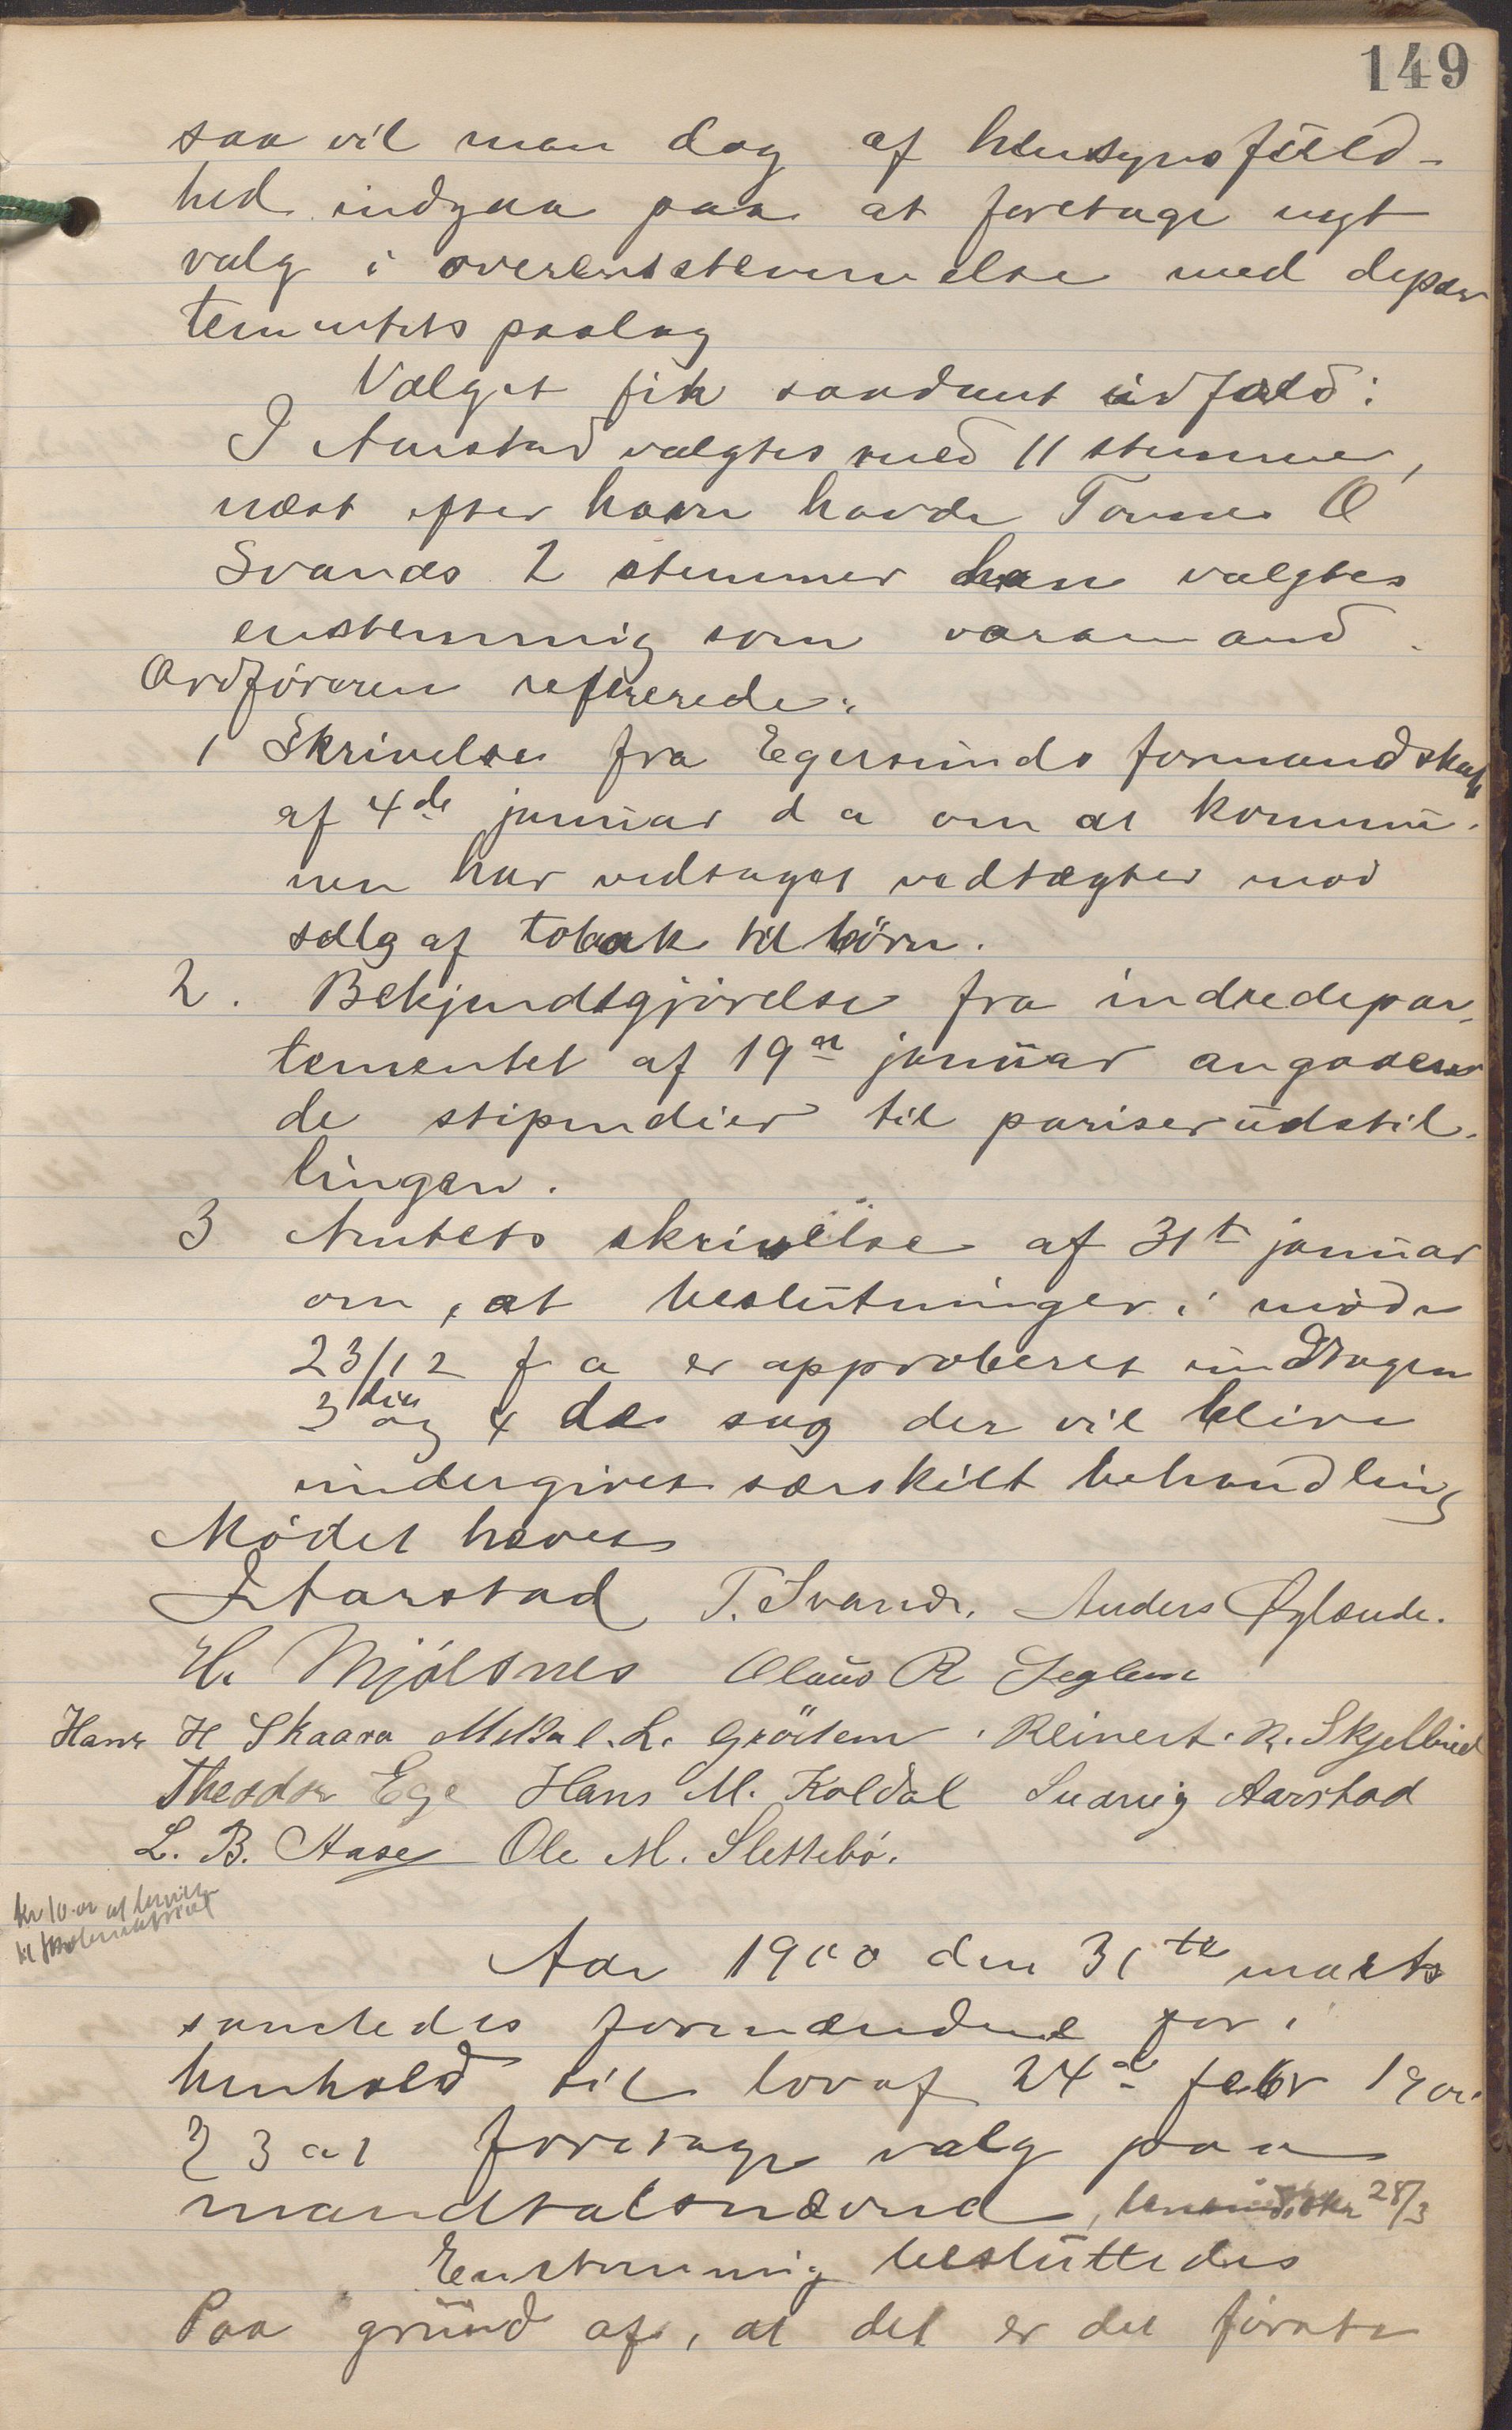 149
saa vil man dog af hensynsfuld-
hed indgaa paa at foretage nyt
valg i overensstemmelse med depar
tementets paalæg
Valget fik saadant udfald:
I Aarstad valgtes med 11 stemmer,
næst efter ham havde Tønnes O
Svanæs 2 stemmer han valgtes
enstemmig som varamand.
Ordføreren refererede:
1 Skrivelse fra Egersunds formandskab
af 4de januar d a om at kommu-
nen har vedtaget vedtægter mod
salg af tobak til børn.
2. Bekjendtgjørelse fra indredepar-
tementet af 19de januar angaaen
de stipendier til pariserudstil-
lingen.
3 Amtets skrivelse af 31te januar
om, at beslutninger i møde
23/12 f a er approberet undtagen
3die og 4de sag der vil blive
undergivet særskilt behandling
Mødet hævet
I Aarstad T. Svanes. Anders Øglænde.
H. Mjølsnes Olaus R Seglem
Hans H Skaara Mikal. L. Grödem. Reinert. R. Skjelbred
Theodor Ege Hans M. Koldal Ludvig Aarstad
L. B. Aase Ole M. Slettebø.
kr 10.00 at
til skolemateriel
Aar 1900 den 31te marts
samledes formændene for i
henhold til lov af 24de febr 1900
§ 3 at foretage valg paa
mandtalsnævnd, 28/3
Enstemmig besluttedes
Paa grund af, at det er det første